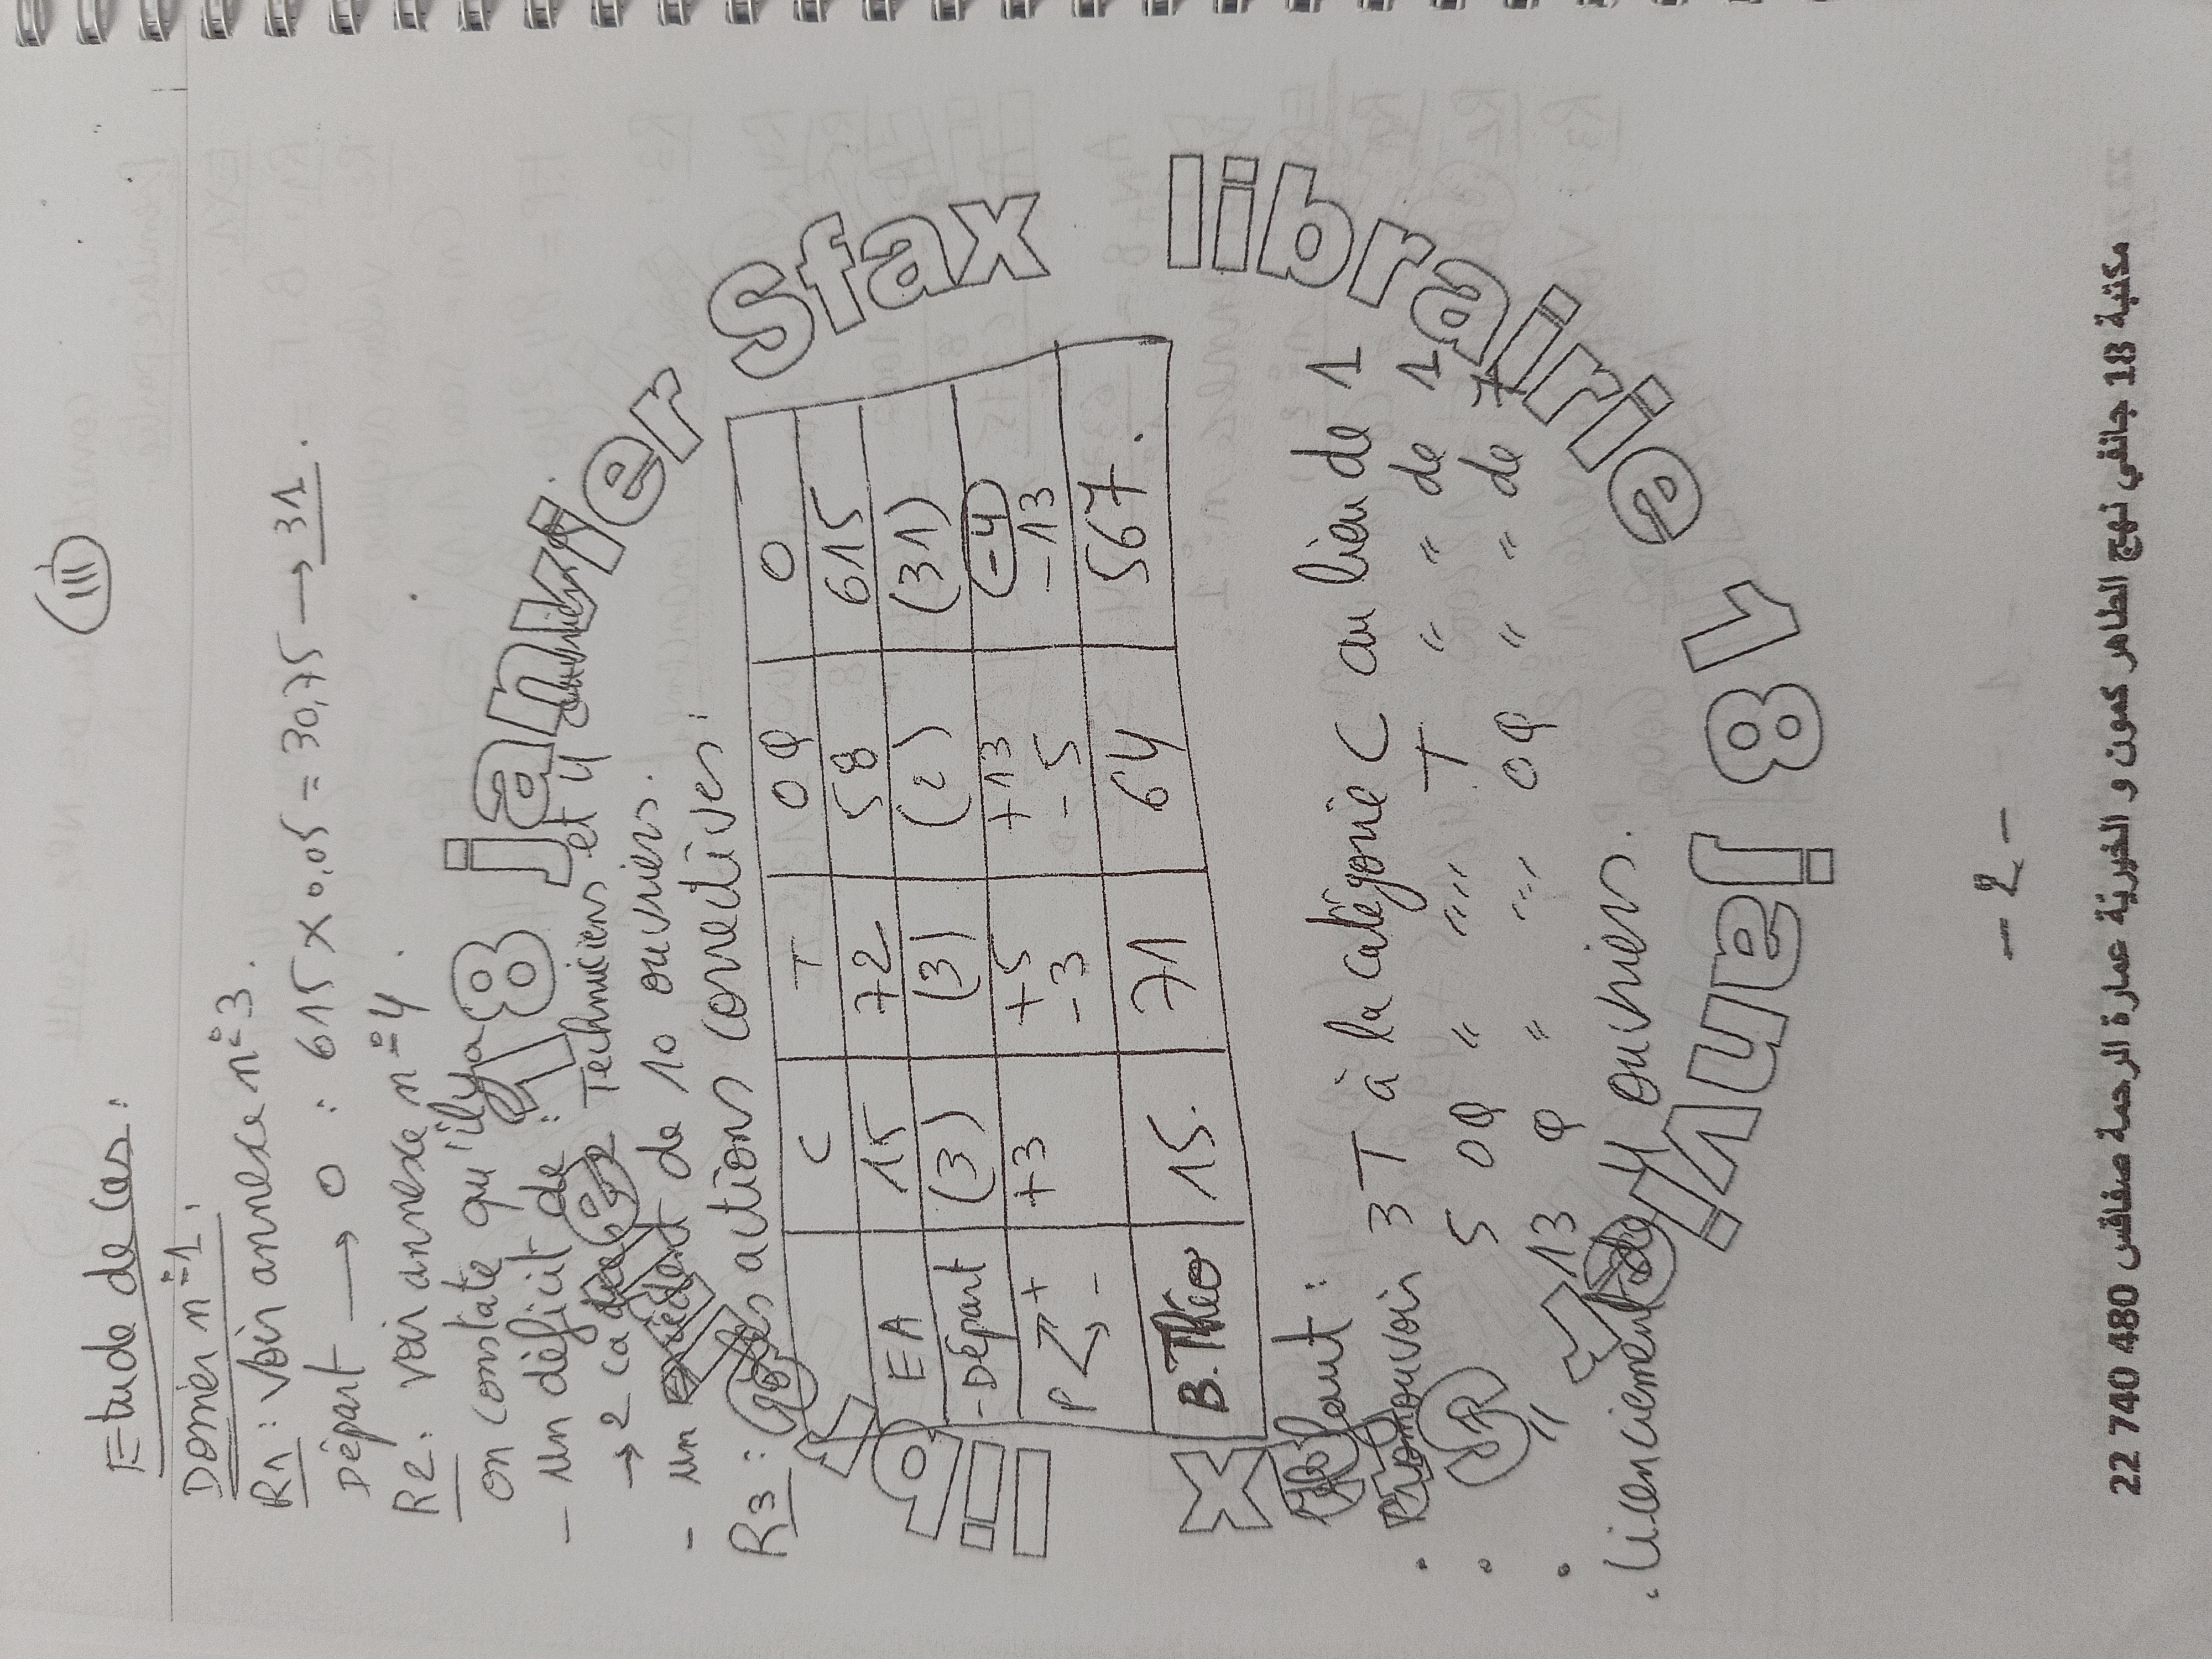 III
Etude de cas:
Dossier n°1:
R1: Voir annexe n°3.
Départ → O : 615 x 0,05 = 30,75 → 31.
R2: voir annexe n°4.
on constate qu'il y a
- un déficit de :
→ 2 cadres, 2 Techniciens et 4 ouvriers.
- un excédent de 10 ouvriers.
R3: les actions correctives:
C T OQ O
EA 15 72 58 615
- Départ (3) (3) (2) (31)
P + +3 +5 +13 -4
- -3 -5 -13
B. Théo 15. 71 64 567.
Il faut:
• Promouvoir 3 T à la catégorie C au lieu de 1
• " 5 OQ " " " T " " de 1
• " 13 O " " " OQ " " de 7
• Licenciement de 4 ouvriers.
18 janvier Sfax librairie 18 janvier Sfax librairie
- 2 -
مكتبة 18 جانفي نهج الطاهر كمون و الخيرية عمارة الرحمة صفاقس 480 740 22